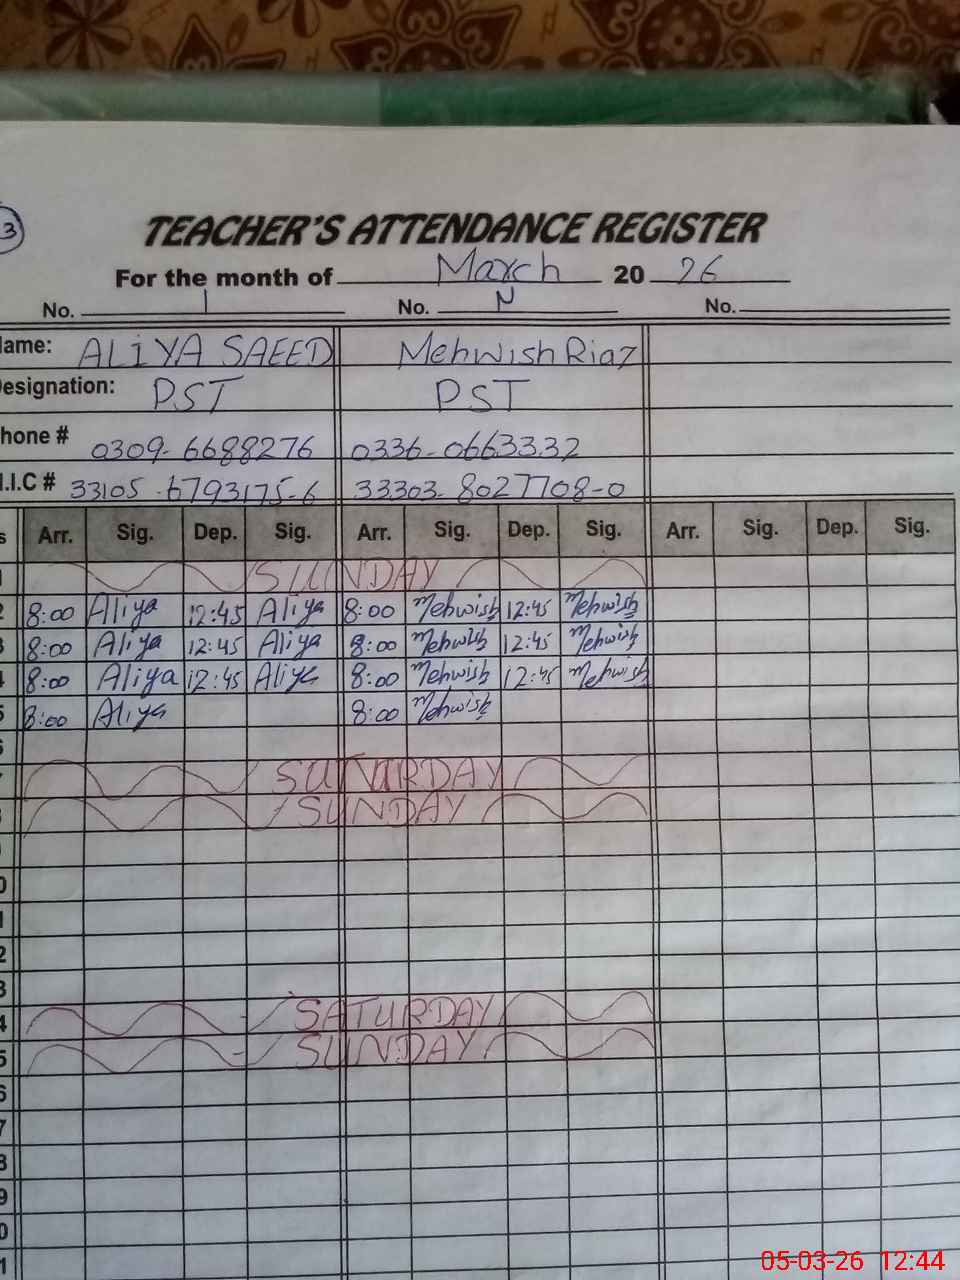 3
TEACHER'S ATTENDANCE REGISTER
For the month of March 20 26
No. 1 No. No.
ame: ALIYA SAEED Mehwish Riaz
esignation: PST PST
hone # 0309-6688276 0336-0663332
.I.C # 33105-6793175-6 33303-8027708-0
s Arr. Sig. Dep. Sig. Arr. Sig. Dep. Sig. Arr. Sig. Dep. Sig.
1 SUNDAY
2 8:00 Aliya 12:45 Aliya 8:00 Mehwish 12:45 Mehwish
3 8:00 Aliya 12:45 Aliya 8:00 Mehwish 12:45 Mehwish
4 8:00 Aliya 12:45 Aliya 8:00 Mehwish 12:45 Mehwish
5 8:00 Aliya 8:00 Mehwish
6
SUTURDAY
SUNDAY
9
0
1
2
3
4 SATURDAY
5 SUNDAY
6
7
8
9
0
1
05-03-26 12:44